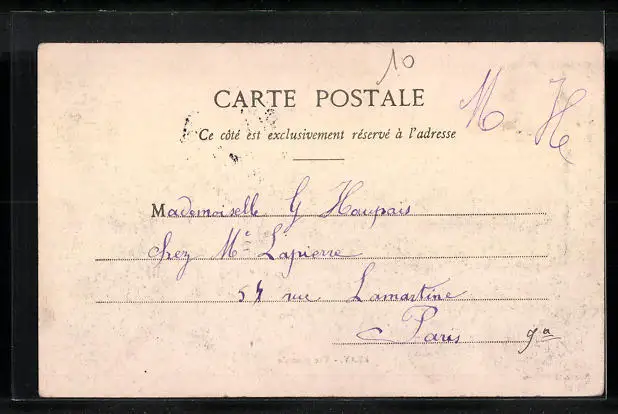 10
CARTE POSTALE
M H
Ce côté est exclusivement réservé à l'adresse
Mademoiselle G Haupais
chez Me Lapierre
54 rue Lamartine
Paris 9a